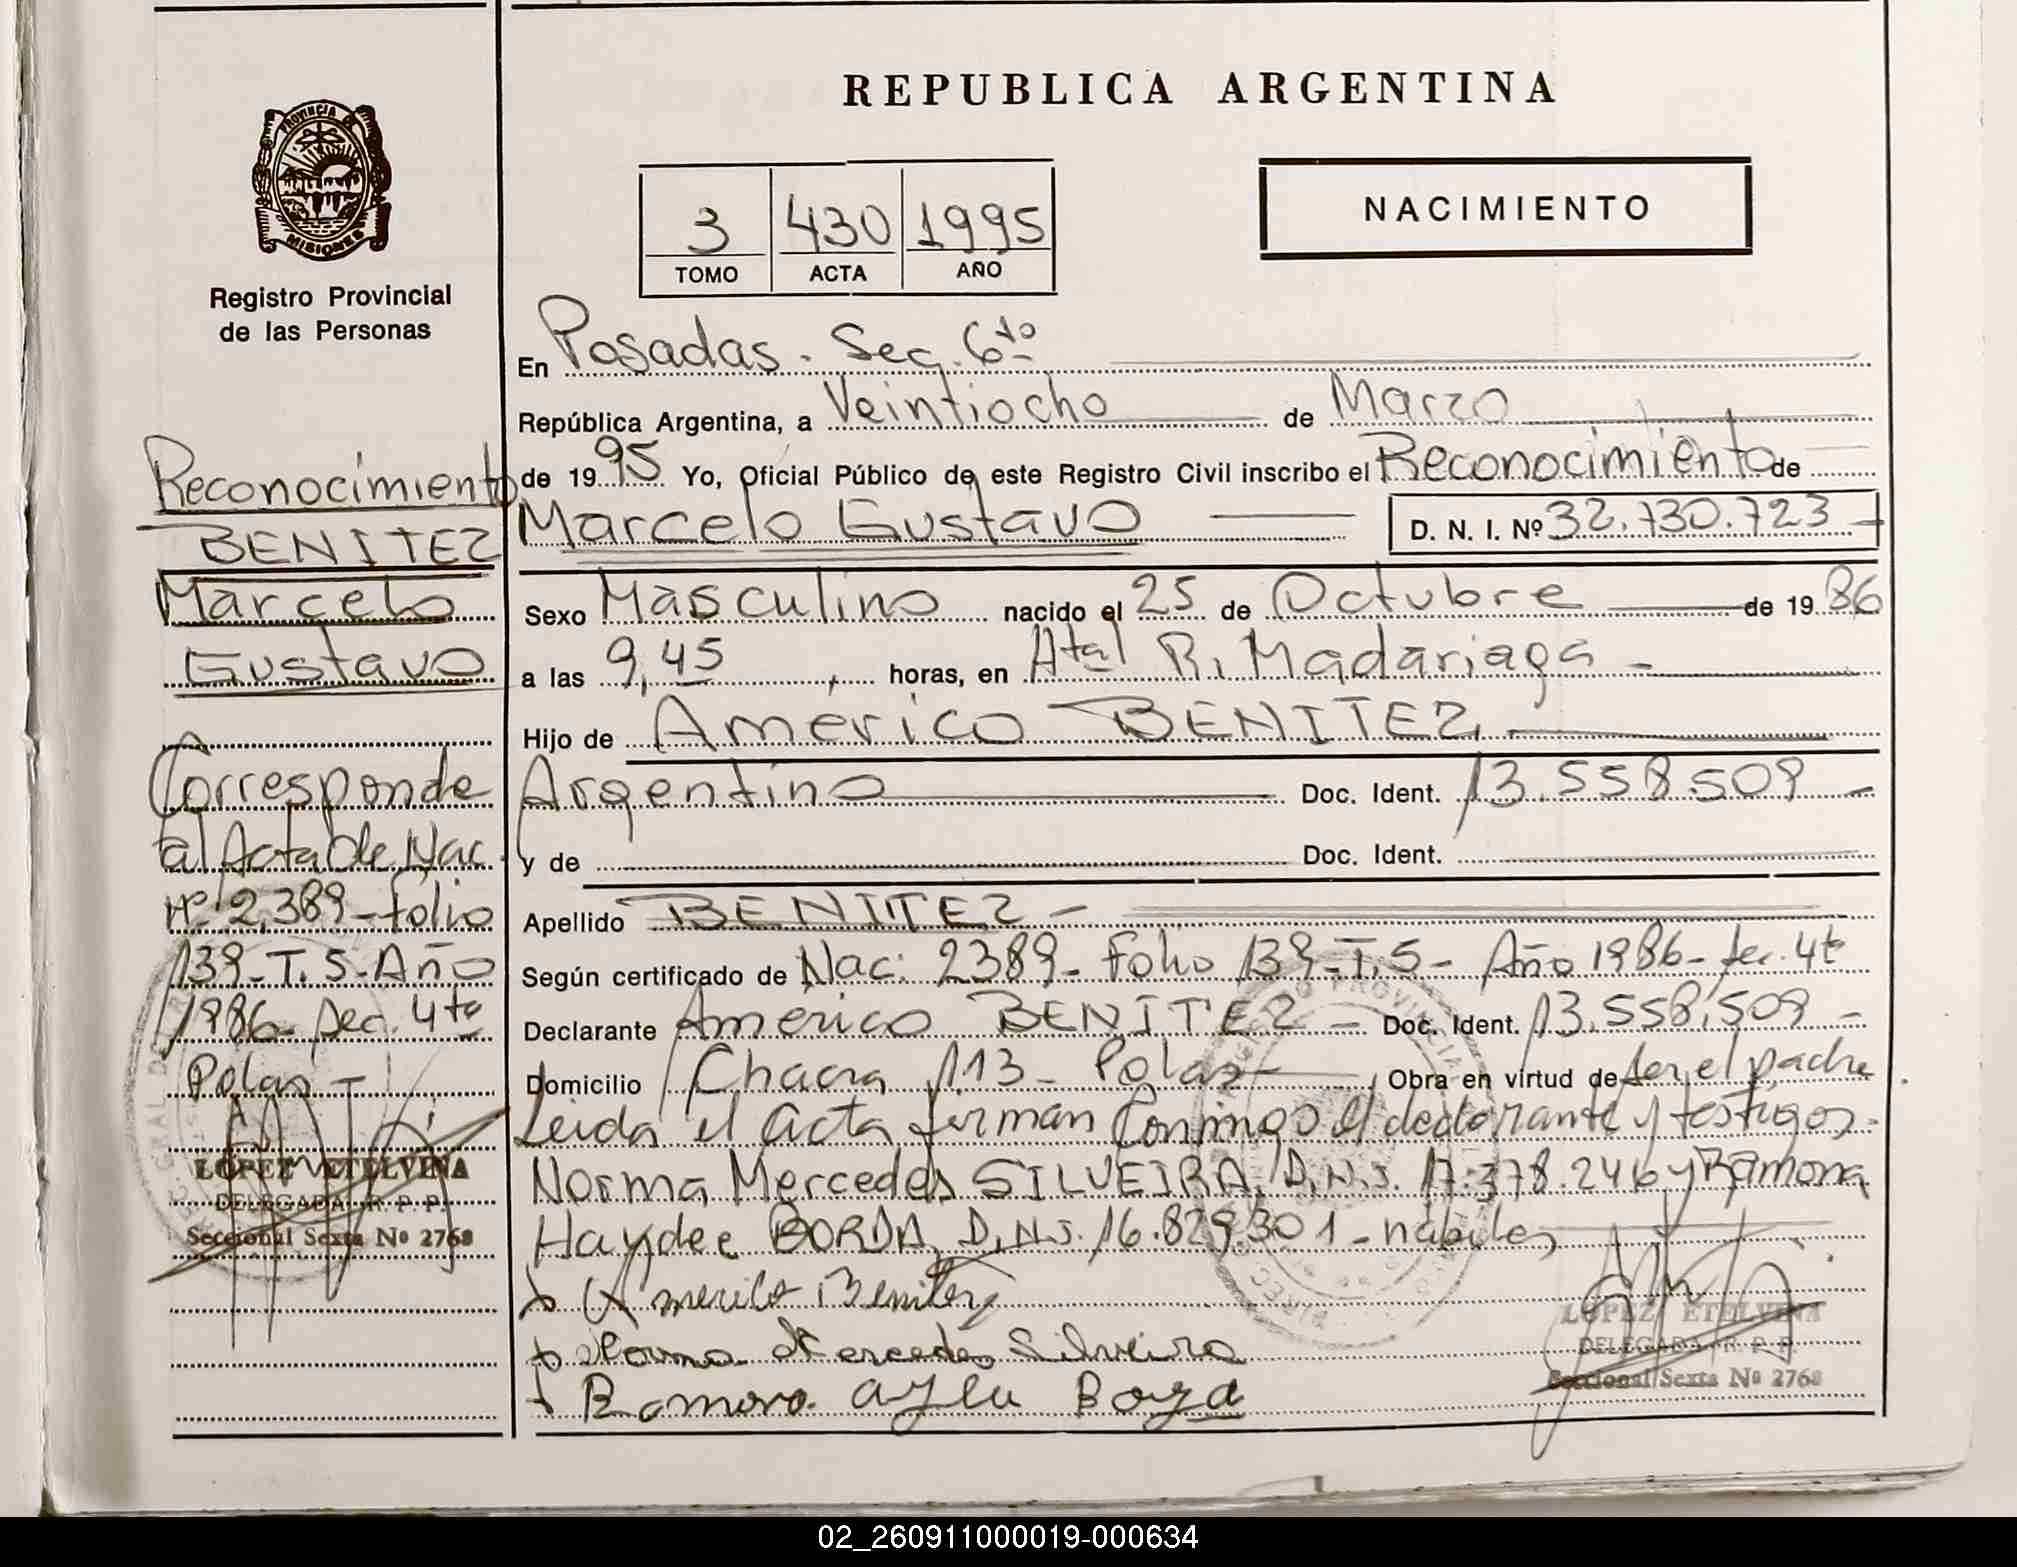 REPUBLICA ARGENTINA
PROVINCIA DE
MISIONES
Registro Provincial
de las Personas
3 430 1995
TOMO ACTA AÑO
NACIMIENTO
En Posadas. Sec. 6to
República Argentina, a Veintiocho de Marzo
de 1995 Yo, Oficial Público de este Registro Civil inscribo el Reconocimiento de
Marcelo Gustavo D. N. I. Nº 32.730.723
Sexo Masculino nacido el 25 de Octubre de 1986
a las 9,45 horas, en Htal R. Madariaga
Hijo de Americo BENITEZ
Argentino Doc. Ident. 13.558.509
y de Doc. Ident.
Apellido BENITEZ
Según certificado de Nac. 2389 - Folio 139 - T. 5 - Año 1986 - Sec. 4ta
Declarante Americo BENITEZ - Doc. Ident. 13.558.509
Domicilio Chacra 113 - Pdas - Obra en virtud de ser el padre
Leida el acta firman conmigo el declarante y testigos
Norma Mercedes SILVEIRA, D.N.I. 17.378.246 y Ramona
Haydee BORDA, D.N.I. 16.829.301 - hábiles
Americo Benitez
Norma Mercedes Silveira
Ramona
LOPEZ ETELVINA
DELEGADA R. P. P.
Seccional Sexta Nº 2768
Reconocimiento
BENITEZ
Marcelo
Gustavo
Corresponde
al Acta de Nac.
Nº 2.389 - folio
139 - T. 5 - Año
1986 - Sec. 4ta
Pdas -
LOPEZ ETELVINA
DELEGADA R. P. P.
Seccional Sexta Nº 2768
02_260911000019-000634